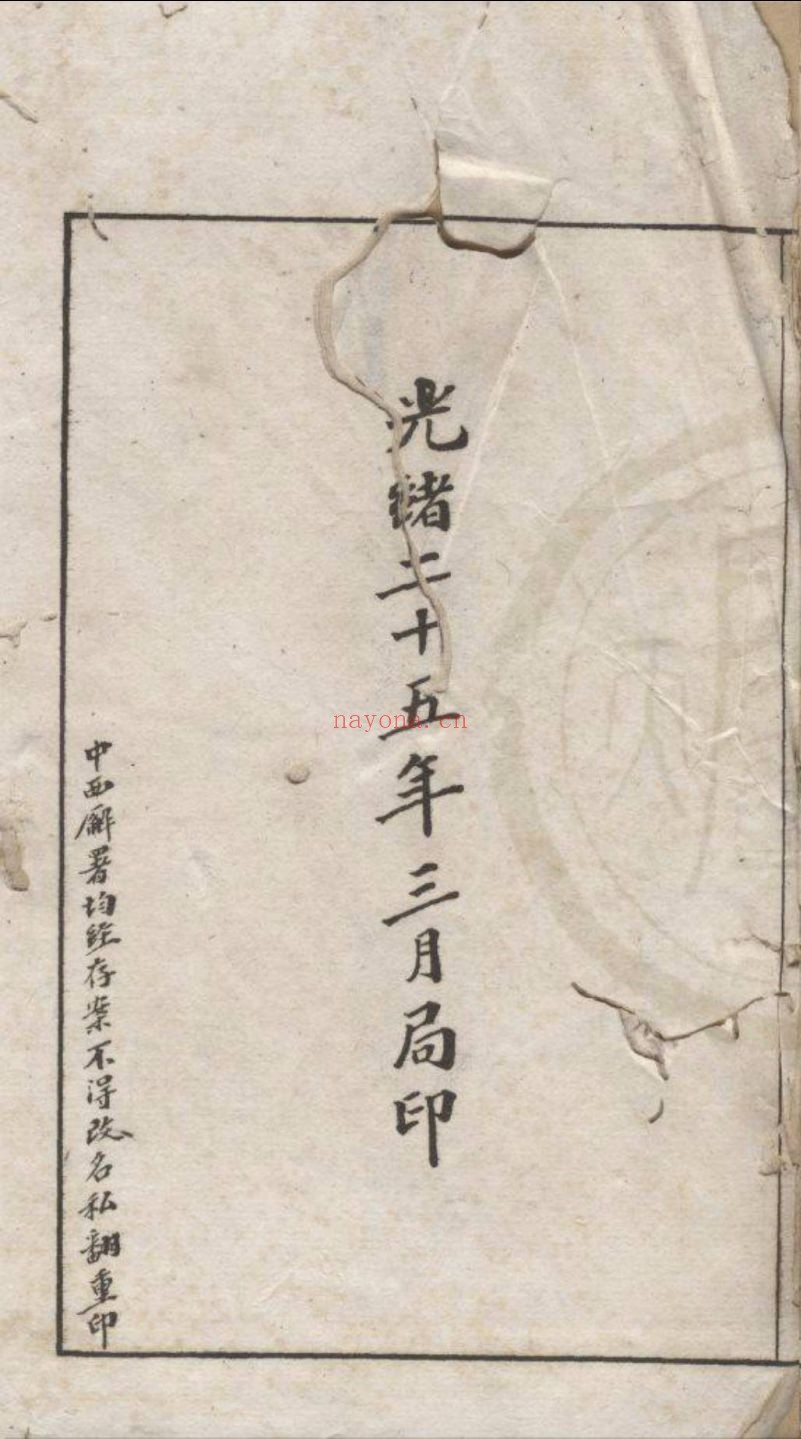 光緒二十五年三月局印
中西廨署均經存案不得改名私翻重印
nayona.cn